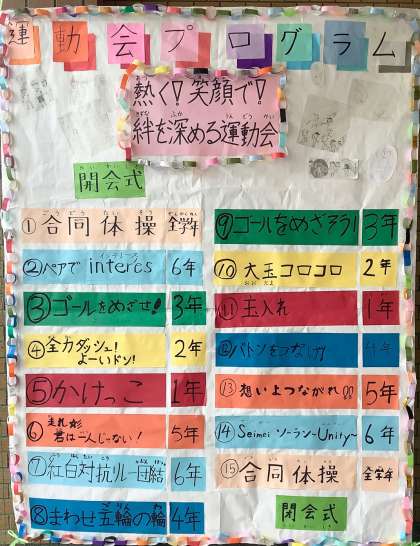 運動会プログラム
熱く!笑顔で!
絆を深める運動会
開会式
①合同体操 全学年
②ペアで interes 6年
③ゴールをめざせ! 3年
④全力ダッシュ!
よーいドン! 2年
⑤かけっこ 1年
⑥走れ
君は一人じゃない! 5年
⑦紅白対抗リレー 6年
⑧まわせ五輪の輪 4年
⑨ゴールをめざそう! 3年
⑩大玉コロコロ 2年
⑪玉入れ 1年
⑫バトンをつなげ! 4年
⑬想いよつながれ 5年
⑭Seimei ソーラン~Unity~ 6年
⑮合同体操 全学年
閉会式